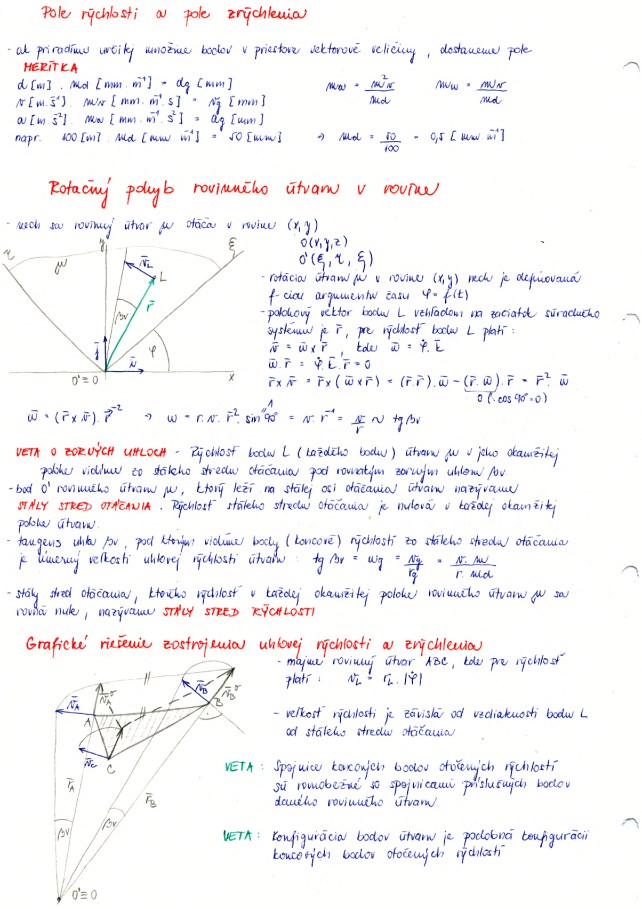 Pole rýchlosti a pole zrýchlenia
- ak priradíme určitej množine bodov v priestore vektorové veličiny, dostaneme pole
MERÍTKA
d [m] . md [mm . m⁻¹] = dg [mm]
v [m.s⁻¹] . mv [mm . m⁻¹ . s] = vg [mm]
a [m.s⁻²] . ma [mm . m⁻¹ . s²] = ag [mm]
ma = m²v / md    mω = mv / md
napr. 100 [m] . md [mm m⁻¹] = 50 [mm] ⇒ md = 50/100 = 0,5 [mm m⁻¹]
Rotačný pohyb rovinného útvaru v rovine
- nech sa rovinný útvar μ otáča v rovine (x,y)
O(x,y,z)
O'(ξ, η, ξ)
η μ y v̄L L ξ
βv r̄ φ
j̄ v̄ O'≡O x
- rotácia útvaru μ v rovine (x,y) nech je definovaná
f-ciou argumentu času φ = f(t)
- polohový vektor bodu L vzhľadom na začiatok súradného
systému je r̄, pre rýchlosť bodu L platí:
v̄ = ω̄ x r̄ , kde ω̄ = φ̇ . k̄
ω̄ . r̄ = φ̇ . k̄ . r̄ = 0
r̄ x v̄ = r̄ x (ω̄ x r̄) = (r̄ . r̄) . ω̄ - (r̄ . ω̄) . r̄ = r̄² . ω̄
0 (cos 90° = 0)
ω̄ = (r̄ x v̄) . r̄⁻² ⇒ ω = r . v . r⁻² . sin 90° = v . r⁻¹ = v/r ~ tg βv
1
VETA O ZORNÝCH UHLOCH - Rýchlosť bodu L (každého bodu) útvaru μ v jeho okamžitej
polohe vidíme zo stáleho stredu otáčania pod rovnakým zorným uhlom βv.
- bod O' rovinného útvaru μ, ktorý leží na stálej osi otáčania útvaru nazývame
STÁLY STRED OTÁČANIA. Rýchlosť stáleho stredu otáčania je nulová v každej okamžitej
polohe útvaru.
- tangens uhla βv, pod ktorým vidíme body (koncové) rýchlostí zo stáleho stredu otáčania
je úmerný veľkosti uhlovej rýchlosti útvaru : tg βv = ωg = vg/rg = v . mv / r . md
- stály stred otáčania, ktorého rýchlosť v každej okamžitej polohe rovinného útvaru μ sa
rovná nule, nazývame STÁLY STRED RÝCHLOSTI
Grafické riešenie zostrojenia uhlovej rýchlosti a zrýchlenia
v̄A v̄A° v̄B v̄B°
A B
v̄C C
r̄A r̄B
βv βv
O'≡O
- majme rovinný útvar ABC, kde pre rýchlosť
platí : vL = rL . |φ̇|
- veľkosť rýchlosti je závislá od vzdialenosti bodu L
od stáleho stredu otáčania
VETA : Spojnice koncových bodov otočených rýchlostí
sú rovnobežné so spojnicami príslušných bodov
daného rovinného útvaru.
VETA : Konfigurácia bodov útvaru je podobná konfigurácii
koncových bodov otočených rýchlostí